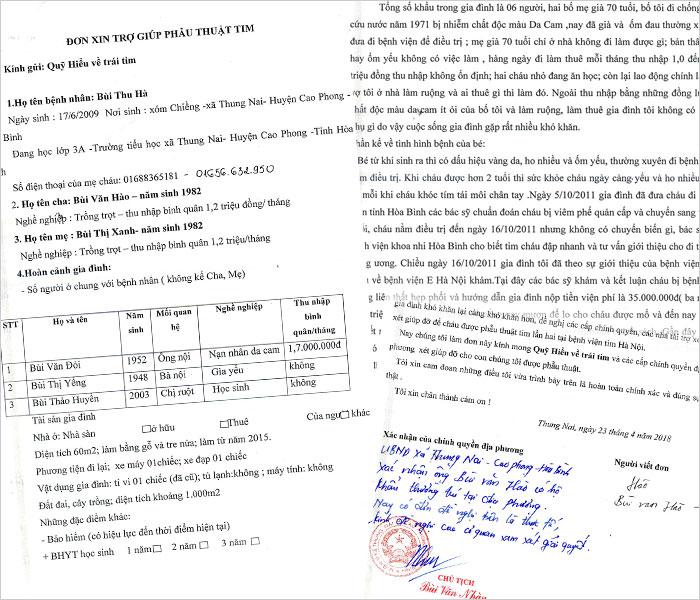 ĐƠN XIN TRỢ GIÚP PHẪU THUẬT TIM
Kính gửi: Quỹ Hiểu về trái tim
1.Họ tên bệnh nhân: Bùi Thu Hà
Ngày sinh : 17/6/2009 Nơi sinh : xóm Chiềng -xã Thung Nai- Huyện Cao Phong -
Bình
Đang học lớp 3A -Trường tiểu học xã Thung Nai- Huyện Cao Phong -Tỉnh Hòa
h
Số điện thoại của mẹ cháu: 01688365181 - 01656.632.950
2. Họ tên cha: Bùi Văn Hào – năm sinh 1982
Nghề nghiệp : Trồng trọt – thu nhập bình quân 1,2 triệu đồng/ tháng
3. Họ tên mẹ : Bùi Thị Xanh- năm sinh 1982
Nghề nghiệp : Trồng trọt – thu nhập bình quân 1,2 triệu/tháng
4.Hoàn cảnh gia đình:
- Số người ở chung với bệnh nhân ( không kể Cha, Mẹ)
STT Họ và tên Năm sinh Mối quan hệ Nghề nghiệp Thu nhập bình quân/tháng
1 Bùi Văn Đòi 1952 Ông nội Nạn nhân da cam 1,7.000.000đ
2 Bùi Thị Yểng 1948 Bà nội Gia yếu không
3 Bùi Thảo Huyền 2003 Chị ruột Học sinh không
Tài sản gia đình
Nhà ở: Nhà sàn ở hữu Thuê Của ngư khác
Diện tích 60m2; làm bằng gỗ và tre nứa; làm từ năm 2015.
Phương tiện đi lại; xe máy 01chiếc; xe đạp 01 chiếc
Vật dụng gia đình: ti vi 01 chiếc (đã cũ); tủ lạnh:không ; máy tính: không
Đất đai, cây trồng; diện tích khoảng 1.000m2
Những đặc điểm khác:
- Bảo hiểm (có hiệu lực đến thời điểm hiện tại)
+ BHYT học sinh 1 năm 2 năm 3 năm
Tổng số khẩu trong gia đình là 06 người, hai bố mẹ già 70 tuổi, bố tôi đi chống
cứu nước năm 1971 bị nhiễm chất độc màu Da Cam ,nay đã già và ốm đau thường x
đưa đi bệnh viện để điều trị ; mẹ già 70 tuổi chỉ ở nhà không đi làm được gì; bản thâ
hay ốm yếu không có việc làm , hàng ngày đi làm thuê mỗi tháng thu nhập 1,0 đế
triệu đồng thu nhập không ổn định; hai cháu nhỏ đang ăn học; còn lại lao động chính l
vợ tôi ở nhà làm ruộng và ai thuê gì thì làm đó. Ngoài thu nhập bằng những đồng l
hất độc màu dacam ít ỏi của bố tôi và làm ruộng, làm thuê gia đình tôi không có
hụ gì do vậy cuộc sống gia đình gặp rất nhiều khó khăn.
hần kể về tình hình bệnh của bé:
Bé từ khi sinh ra thì có dấu hiệu vàng da, ho nhiều và ốm yếu, thường xuyên đi bệnh
m điều trị. Khi cháu được hơn 2 tuổi thì sức khỏe cháu ngày càng yếu và ho nhiều
mỗi khi cháu khóc tím tái môi chân tay .Ngày 5/10/2011 gia đình đã đưa cháu đi
n tỉnh Hòa Bình các bác sỹ chuẩn đoán cháu bị viêm phế quản cấp và chuyển sang
i, cháu nằm điều trị đến ngày 16/10/2011 nhưng không có chuyển biến gì, bác s
h viện khoa nhi Hòa Bình cho biết tim cháu đập nhanh và tư vấn giới thiệu cho đi t
g ương. Chiều ngày 16/10/2011 gia đình tôi đã theo sự giới thiệu của bệnh viện
về bệnh viện E Hà Nội khám.Tại đây các bác sỹ khám và kết luận cháu bị bệnh
g liên thất hẹp phổi và hướng dẫn gia đình nộp tiền viện phí là 35.000.000đ( ba
triệ để lo cho cháu được mổ và đến nay
gia đình khó khăn lại càng khó khăn hơn, đề nghị các cấp chính quyền, các nhà tài trợ
xét giúp đỡ để cháu được phẫu thuật tim lần hai tại bệnh viện tim Hà Nội.
Nay chúng tôi làm đơn này kính mong Quỹ Hiểu về trái tim và các cấp chính quyền đị
phương xét giúp đỡ cho con chúng tôi được phẫu thuật.
Tôi xin cam đoan những điều tôi vừa trình bày trên là hoàn toàn chính xác và đúng s
thật .
Tôi xin chân thành cám ơn !
Thung Nai, ngày 23 tháng 4 năm 2018
Xác nhận của chính quyền địa phương
Người viết đơn
UBND xã Thung Nai - Cao phong - Hòa Bình
xác nhận ông Bùi văn Hào có hộ
khẩu thường trú tại địa phương.
Nay có đơn đề nghị trên là thực tế,
kính đề nghị các cơ quan xem xét giải quyết.
Hào
Bùi văn Hào
CHỦ TỊCH
Bùi Văn Nhàn